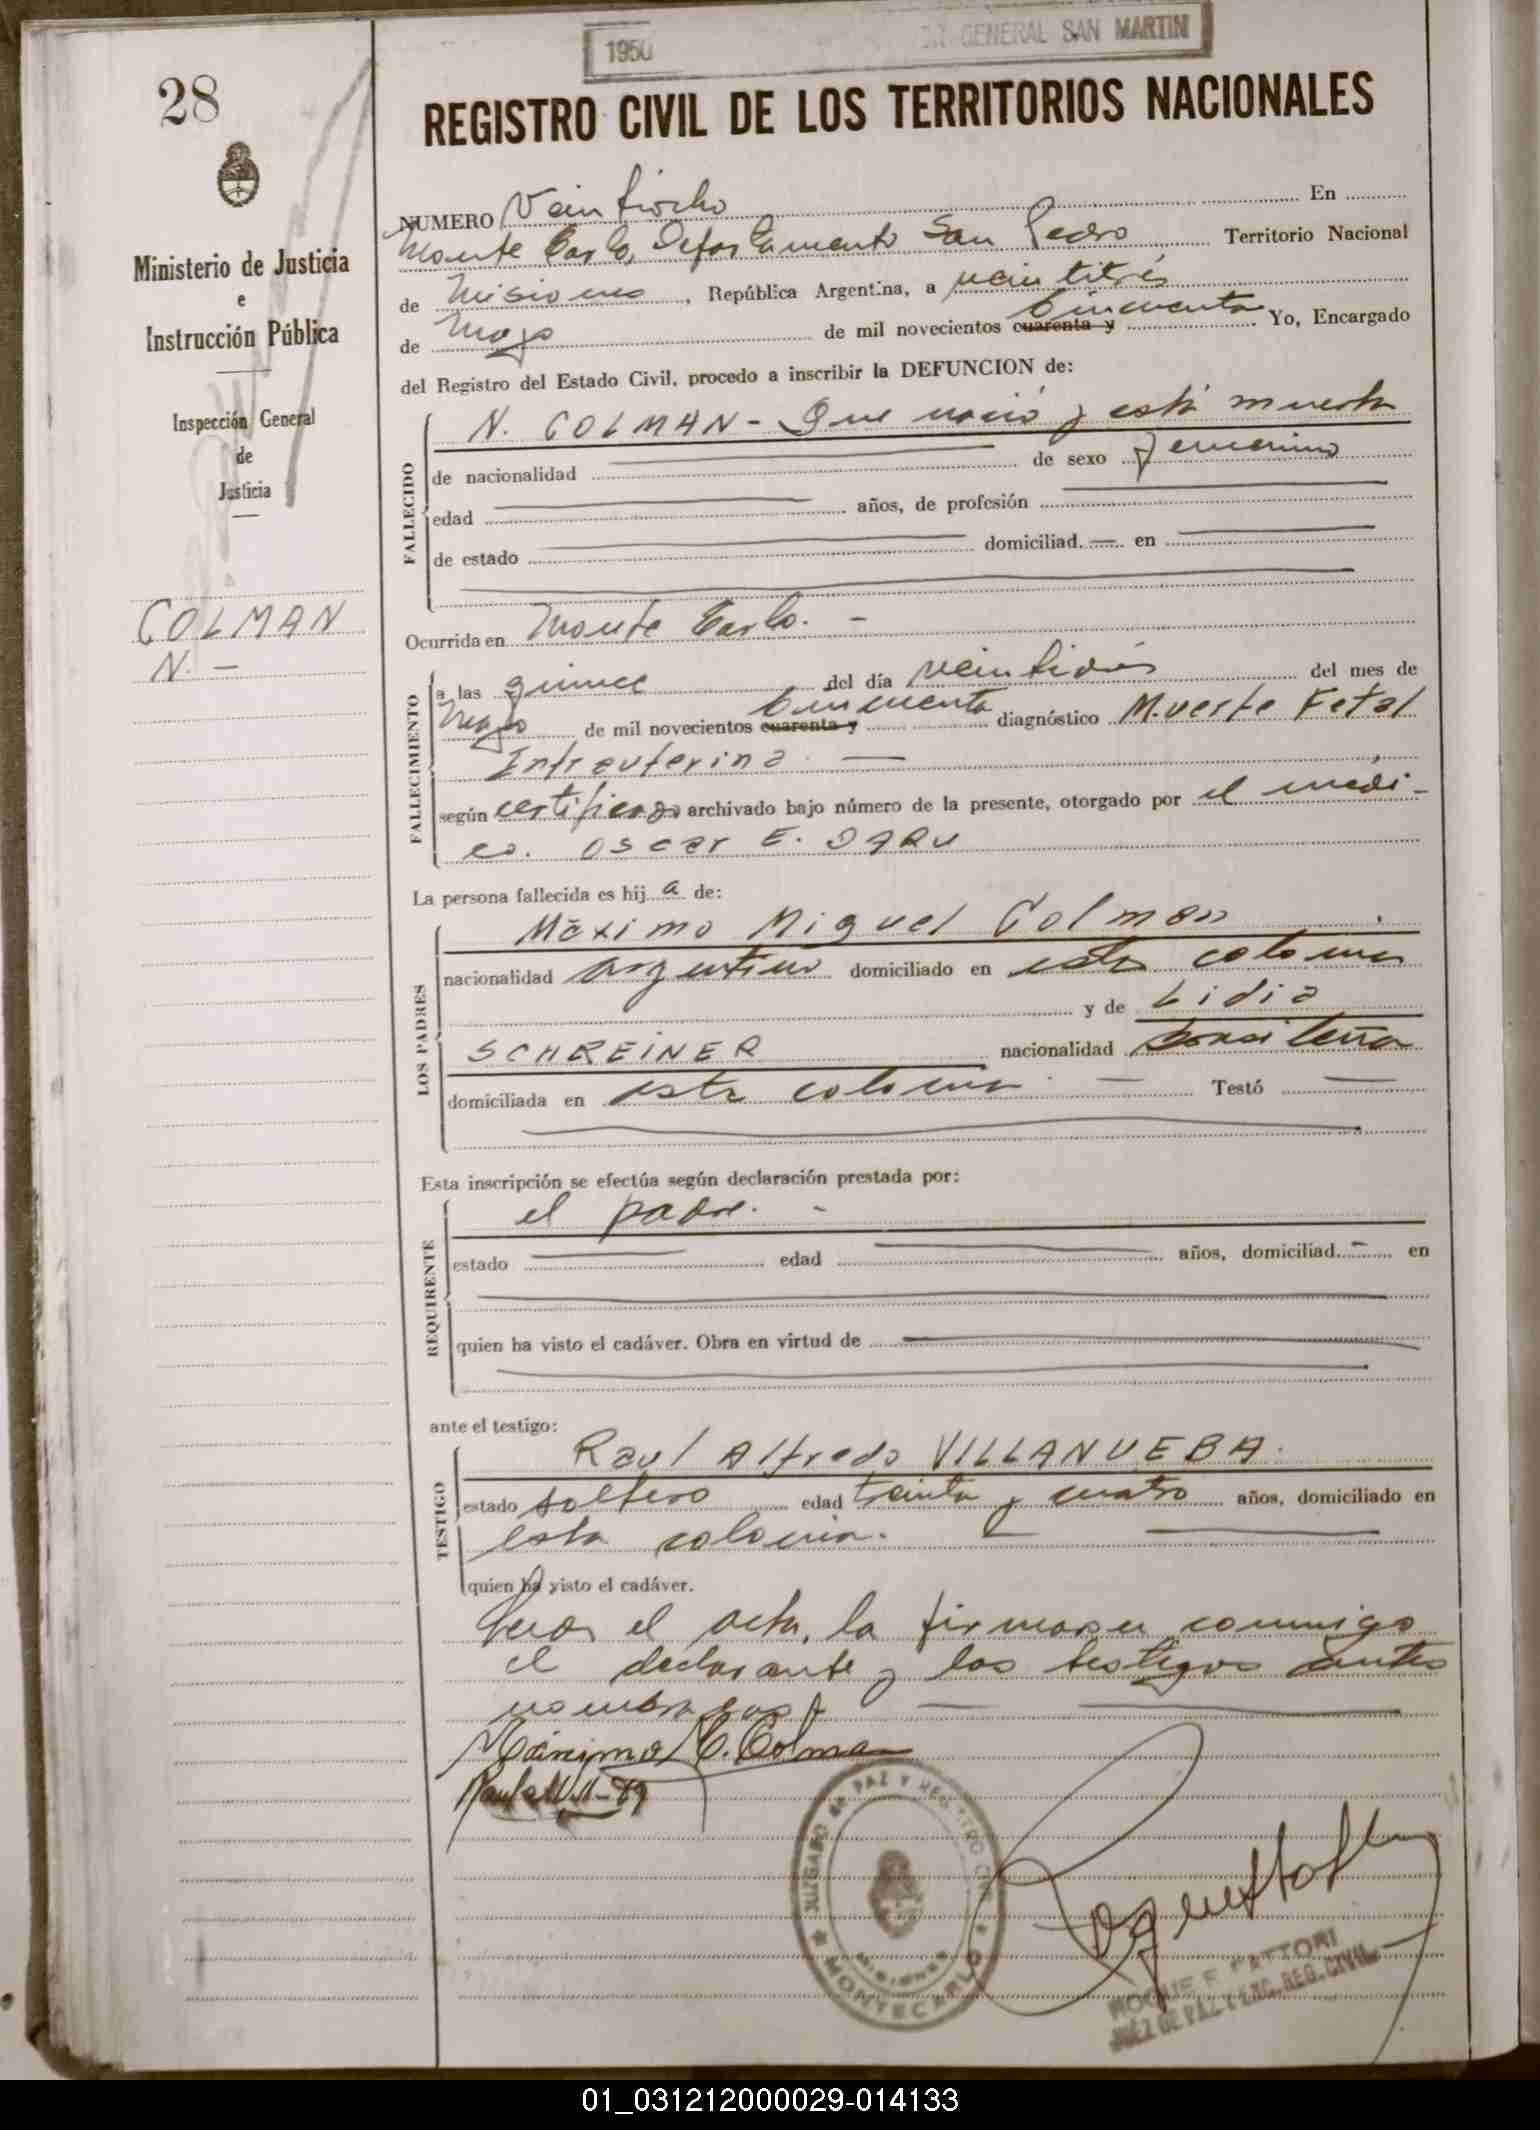 1950 GENERAL SAN MARTIN
28
REGISTRO CIVIL DE LOS TERRITORIOS NACIONALES
Ministerio de Justicia
e
Instrucción Pública
Inspección General
de
Justicia
COLMAN
N. —
NUMERO Veintiocho En
Monte Carlo, Departamento San Pedro Territorio Nacional
de Misiones, República Argentina, a veintitrés
de Mayo de mil novecientos cuarenta y cincuenta Yo, Encargado
del Registro del Estado Civil, procedo a inscribir la DEFUNCION de:
FALLECIDO
N. COLMAN - Que nació y está muerta
de nacionalidad de sexo femenino
edad años, de profesión
de estado domiciliad. — en
Ocurrida en Monte Carlo. —
FALLECIMIENTO
a las quince del día veintidós del mes de
Mayo de mil novecientos cuarenta y cincuenta diagnóstico Muerte Fetal
Intrauterina. —
según certificado archivado bajo número de la presente, otorgado por el médi-
co. Oscar E. DARU
La persona fallecida es hij a de:
LOS PADRES
Máximo Miguel Colman
nacionalidad argentino domiciliado en esta colonia
y de Lidia
SCHREINER nacionalidad brasileña
domiciliada en esta colonia. — Testó —
Esta inscripción se efectúa según declaración prestada por:
REQUIRENTE
el padre. -
estado edad años, domiciliad. - en
quien ha visto el cadáver. Obra en virtud de
ante el testigo:
TESTIGO
Raul Alfredo VILLANUEBA.
estado soltero edad treinta y cuatro años, domiciliado en
esta colonia. —
quien ha visto el cadáver.
Leida el acta, la firman conmigo
el declarante y los testigos antes
nombrados
Máximo C. Colman
JUZGADO de PAZ Y REGISTRO CIVIL
MISIONES
MONTECARLO
ROQUE F. FATTORI
JUEZ DE PAZ Y ENC. REG. CIVIL
01_031212000029-014133